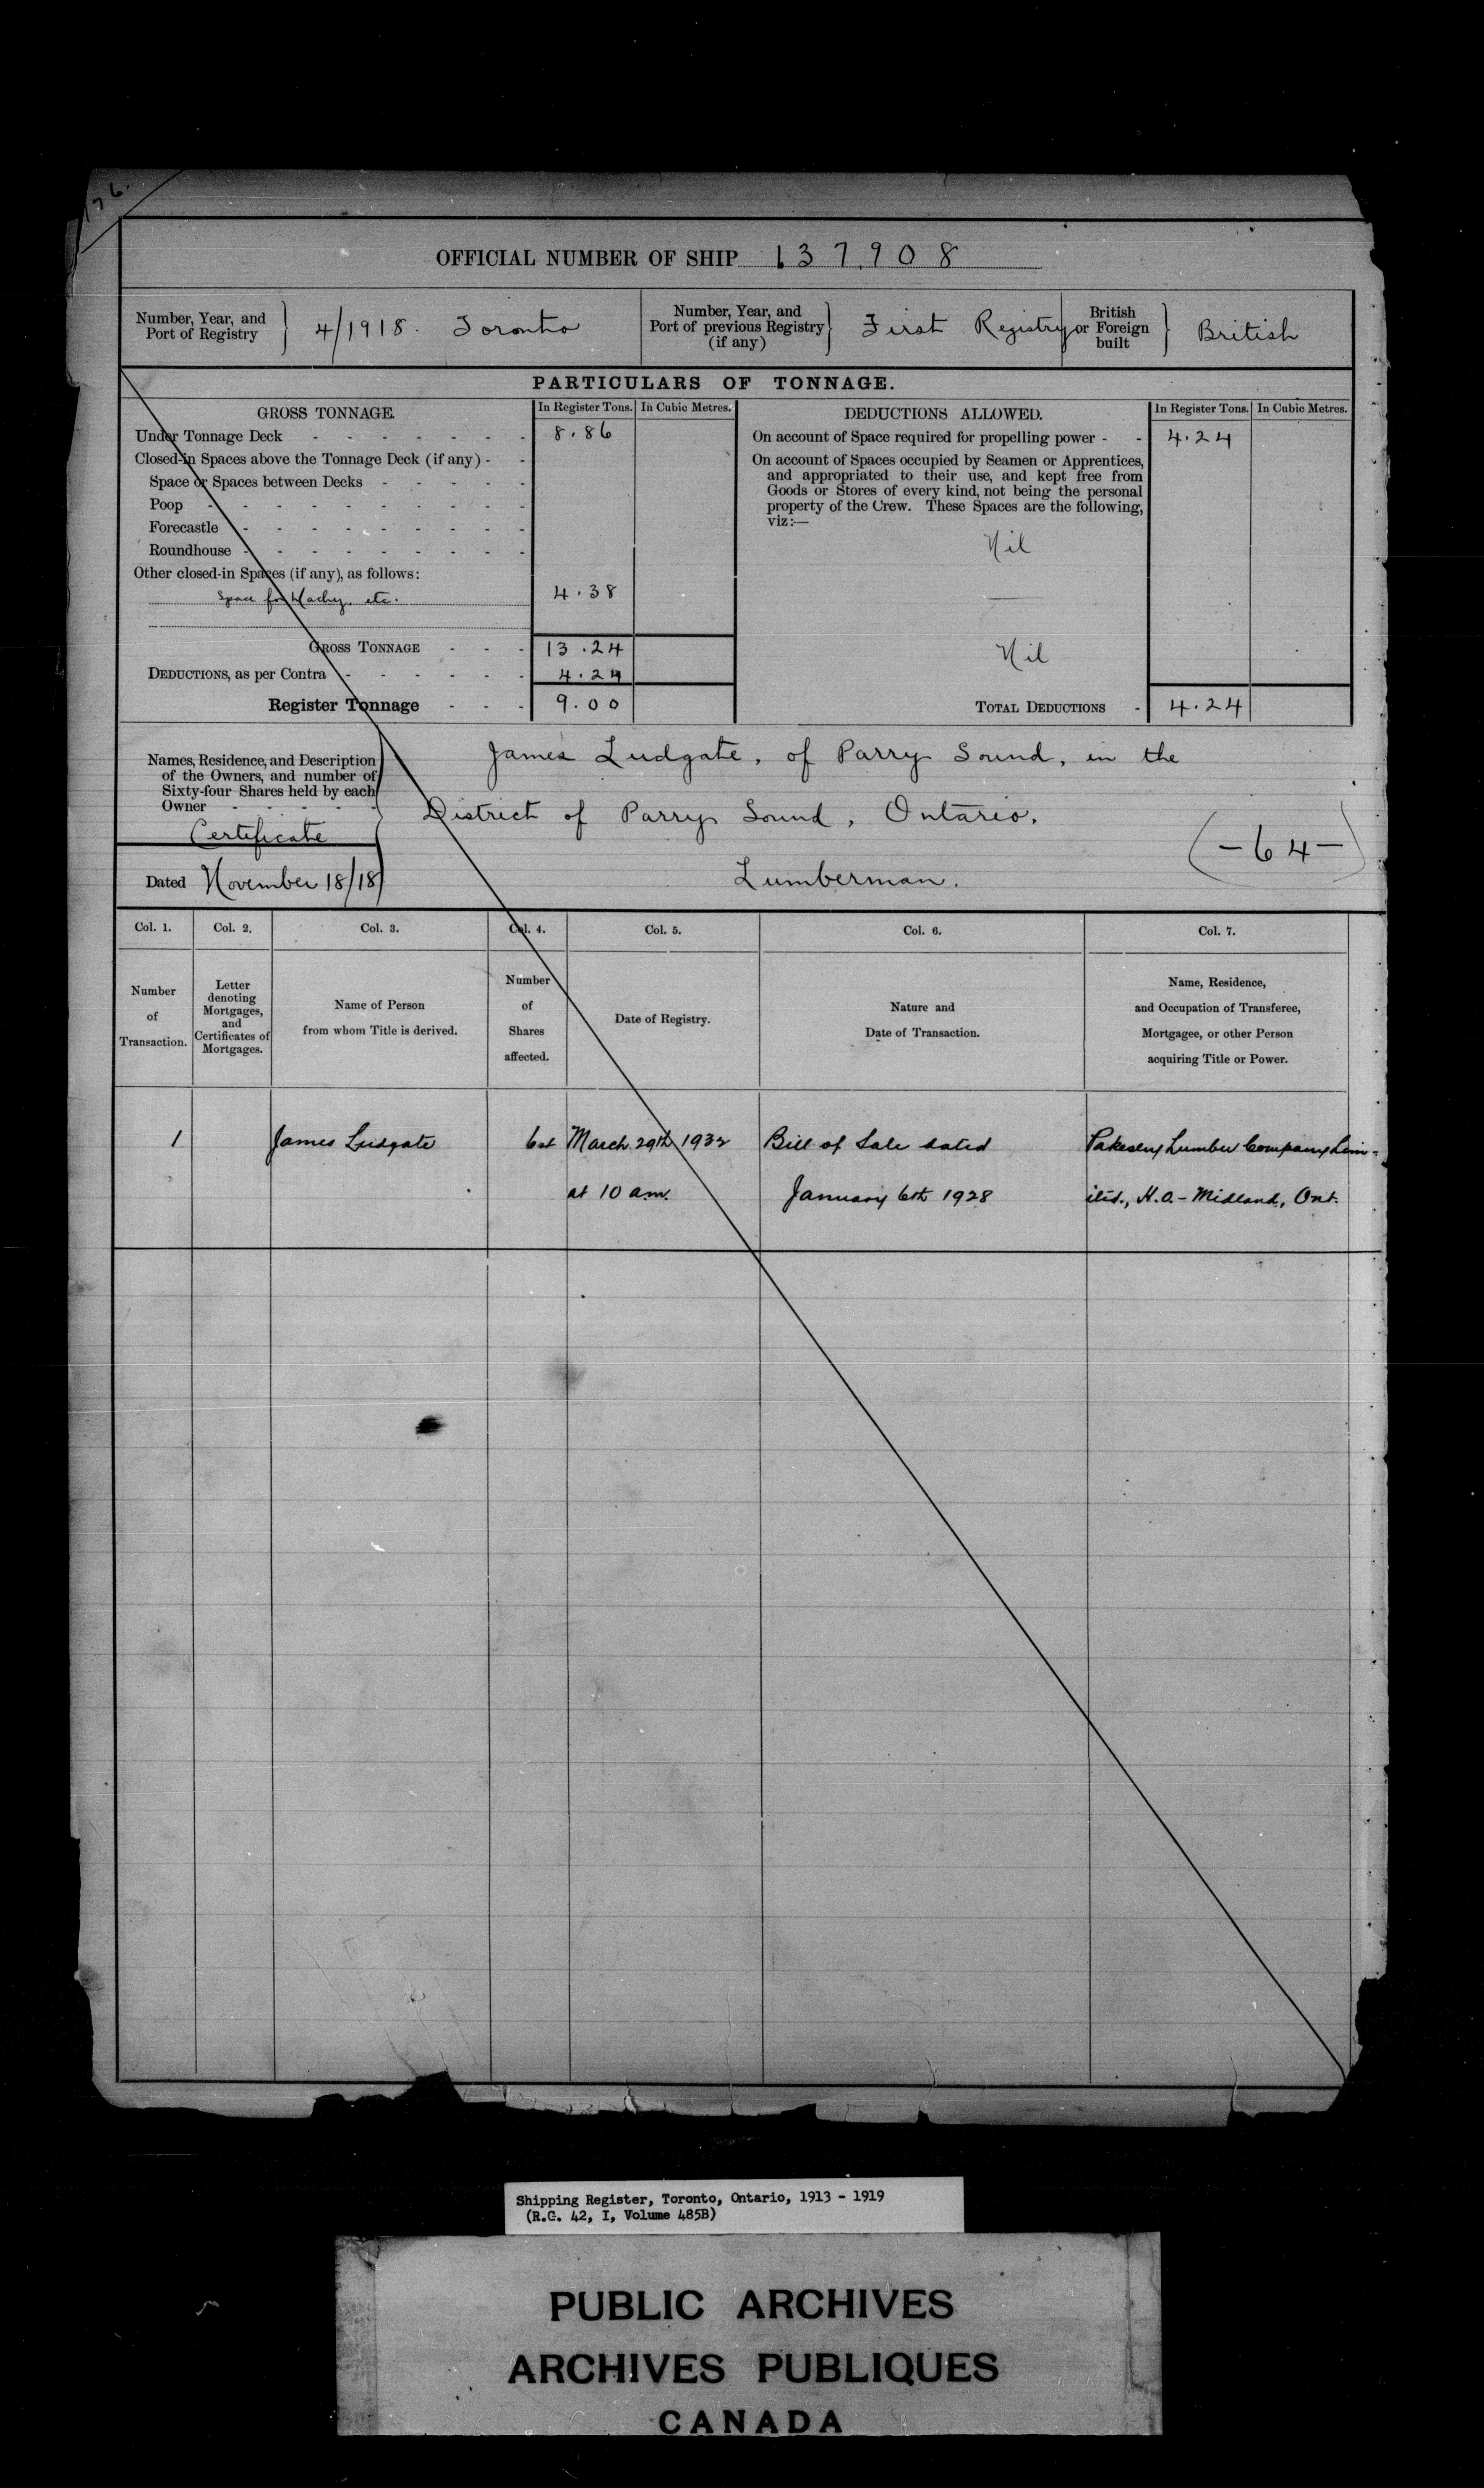 176.
OFFICIAL NUMBER OF SHIP 137,908
Number, Year, and Port of Registry 4/1918. Toronto
Number, Year, and Port of previous Registry (if any) First Registry
British or Foreign built British
PARTICULARS OF TONNAGE.
GROSS TONNAGE. In Register Tons. In Cubic Metres.
Under Tonnage Deck - - - - - - - 8.86
Closed-in Spaces above the Tonnage Deck (if any) - -
Space or Spaces between Decks - - - - -
Poop - - - - - - - - - -
Forecastle - - - - - - - - -
Roundhouse - - - - - - - - -
Other closed-in Spaces (if any), as follows:
Space for Machy. etc. 4.38
GROSS TONNAGE - - - 13.24
DEDUCTIONS, as per Contra - - - - - - 4.24
Register Tonnage - - - 9.00
DEDUCTIONS ALLOWED. In Register Tons. In Cubic Metres.
On account of Space required for propelling power - - 4.24
On account of Spaces occupied by Seamen or Apprentices,
and appropriated to their use, and kept free from
Goods or Stores of every kind, not being the personal
property of the Crew. These Spaces are the following,
viz:—
Nil
Nil
TOTAL DEDUCTIONS - 4.24
Names, Residence, and Description
of the Owners, and number of
Sixty-four Shares held by each
Owner - - - - -
Certificate
Dated November 18/18
James Ludgate, of Parry Sound, in the
District of Parry Sound, Ontario.
Lumberman.
(-64-)
Col. 1. Col. 2. Col. 3. Col. 4. Col. 5. Col. 6. Col. 7.
Number of Transaction.
Letter denoting Mortgages, and Certificates of Mortgages.
Name of Person from whom Title is derived.
Number of Shares affected.
Date of Registry.
Nature and Date of Transaction.
Name, Residence, and Occupation of Transferee, Mortgagee, or other Person acquiring Title or Power.
1 James Ludgate 64 March 29th 1932 Bill of Sale dated Pakesley Lumber Company Lim-
at 10 a.m. January 6th 1928 ited., H.O. - Midland, Ont.
Shipping Register, Toronto, Ontario, 1913 - 1919
(R.G. 42, I, Volume 485B)
PUBLIC ARCHIVES
ARCHIVES PUBLIQUES
CANADA